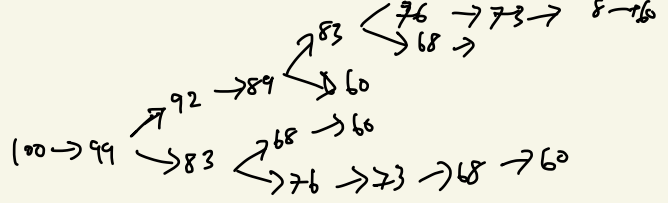 83 76 → 73 → 8 → 60
68 →
92 → 89 60
100 → 99 83 68 → 60
76 → 73 → 68 → 60